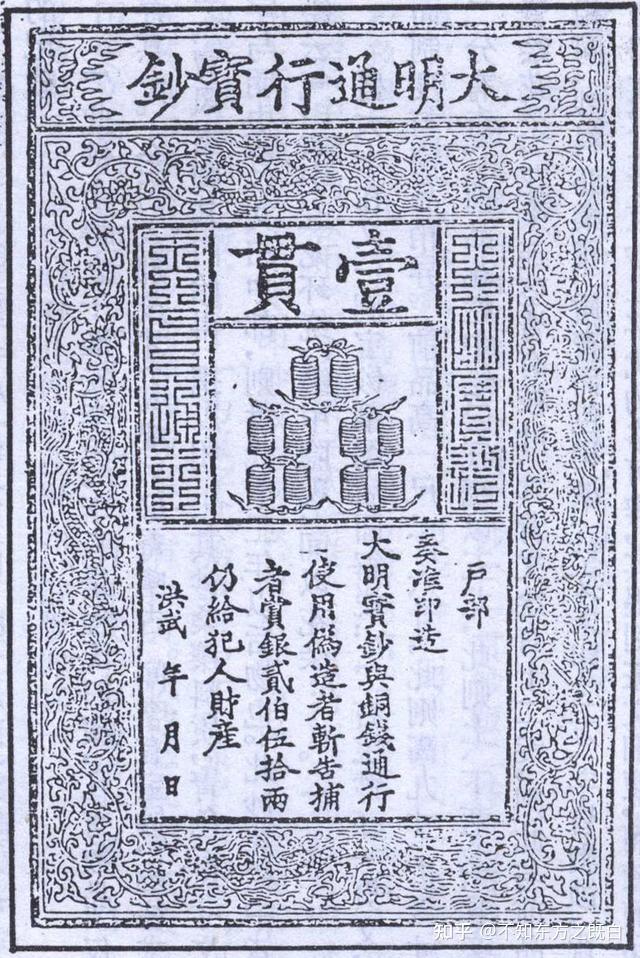 大明通行寶鈔
壹貫
大明寶鈔
天下通行
戶部
奏准印造
大明寶鈔與銅錢通行
使用僞造者斬告捕
者賞銀貳伯伍拾兩
仍給犯人財産
洪武 年 月 日
知乎 @不知东方之既白